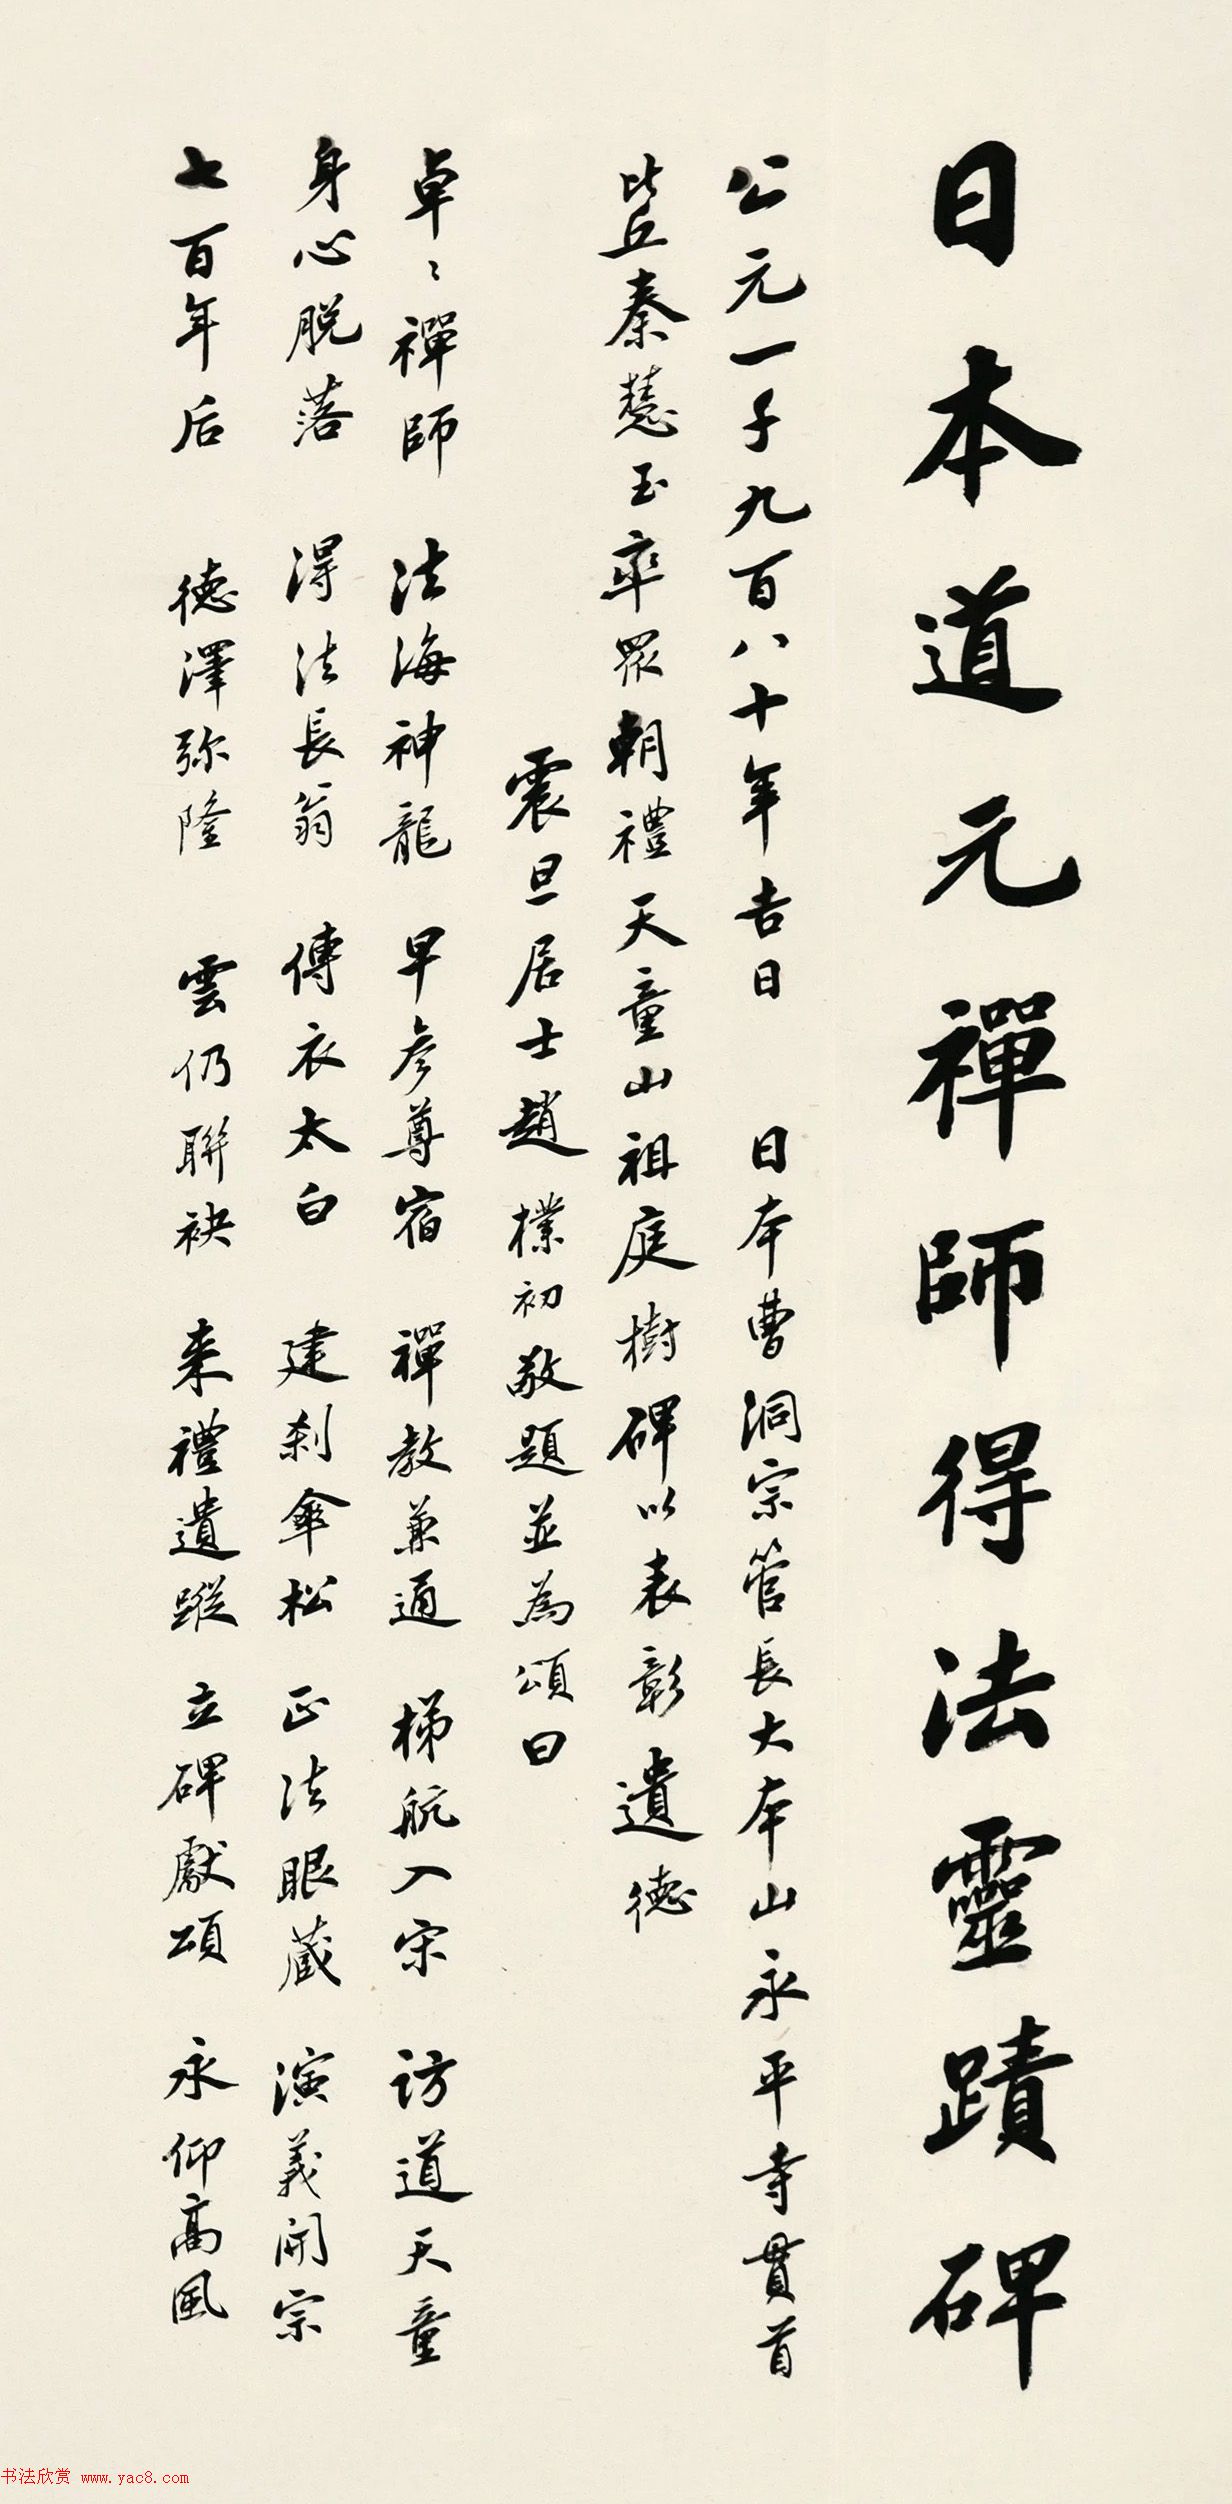 日本道元禪師得法靈蹟碑
公元一千九百八十年吉日 日本曹洞宗管長大本山永平寺貫首
比丘秦慧玉率眾朝禮天童山祖庭樹碑以表彰遺德
震旦居士趙樸初敬題並為頌曰
卓〻禪師 法海神龍 早參尊宿 禪教兼通 梯航入宋 訪道天童
身心脫落 得法長翁 傳衣太白 建剎傘松 正法眼藏 演義開宗
七百年后 德澤弥隆 雲仍聯袂 来禮遺蹤 立碑獻頌 永仰高風
书法欣赏 www.yac8.com